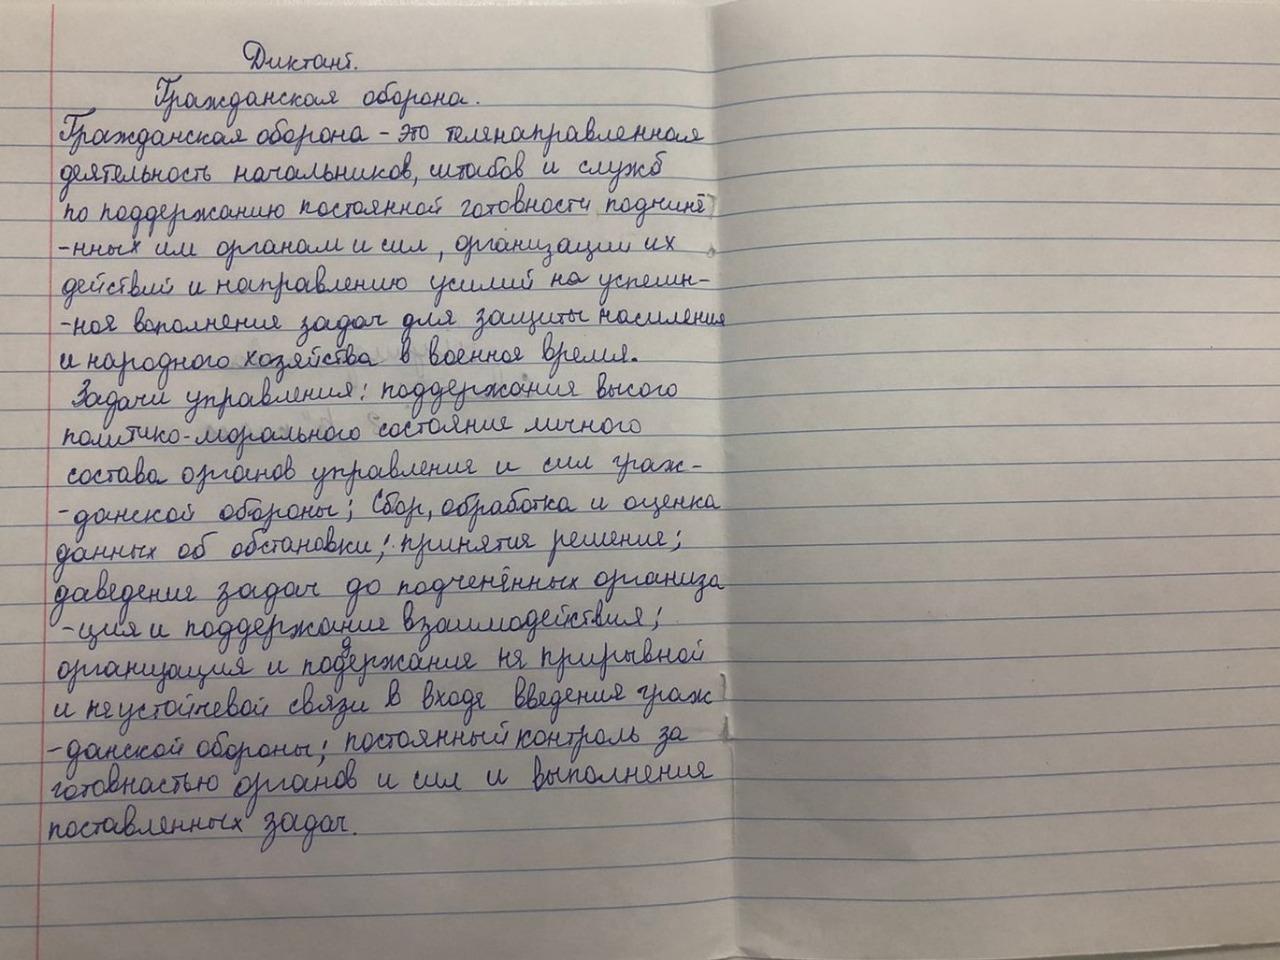 Диктант.
Гражданская оборона.
Гражданская оборона - это теленаправленная
деятельность начальников, штабов и служб
по поддержанию постоянной готовности подчинё
-нных им органам и сил, организации их
действий и направлению усилий на успешн-
-ная вополнения задач для защиты насиления
и народного хозяйства в военная время.
Задачи управления: поддержания высого
политико-морального состояние личного
состава органов управления и сил граж-
-данской обороны; Сбор, обработка и оценка
данных об обстановки; принятия решение;
даведение задач до подченённых организа
-ция и поддержание взаимодействия;
организация и поддержание не прирывной
и неустойчевой связи в входе введения граж
-данской обороны; постоянный контроль за
готовнастью органов и сил и выполнения
поставленных задач.